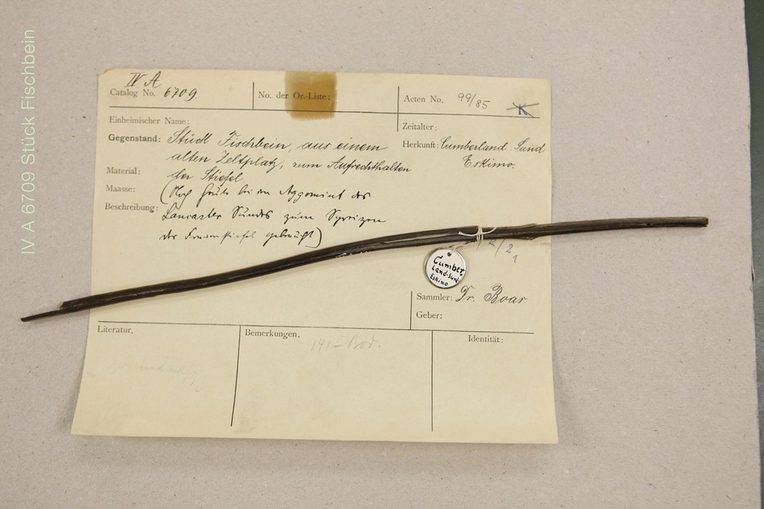 IV A 6709 Stück Fischbein
IV A
Catalog No. 6709
No. der Or.-Liste:
Acten No. 99/85
K
Einheimischer Name:
Zeitalter:
Gegenstand: Stück Fischbein, aus einem
alten Zeltplatz, zum Aufrechthalten
der Stiefel
Herkunft: Cumberland Sund
Eskimo.
Material:
Maasse:
(Noch heute bei den des
Beschreibung: Lancaster Sundes zum Spreizen
der Frauenstiefel gebraucht)
Cumber
land-Sund
Eskimo
Sammler: Dr. Boas
Geber:
Literatur.
Bemerkungen.
Identität: